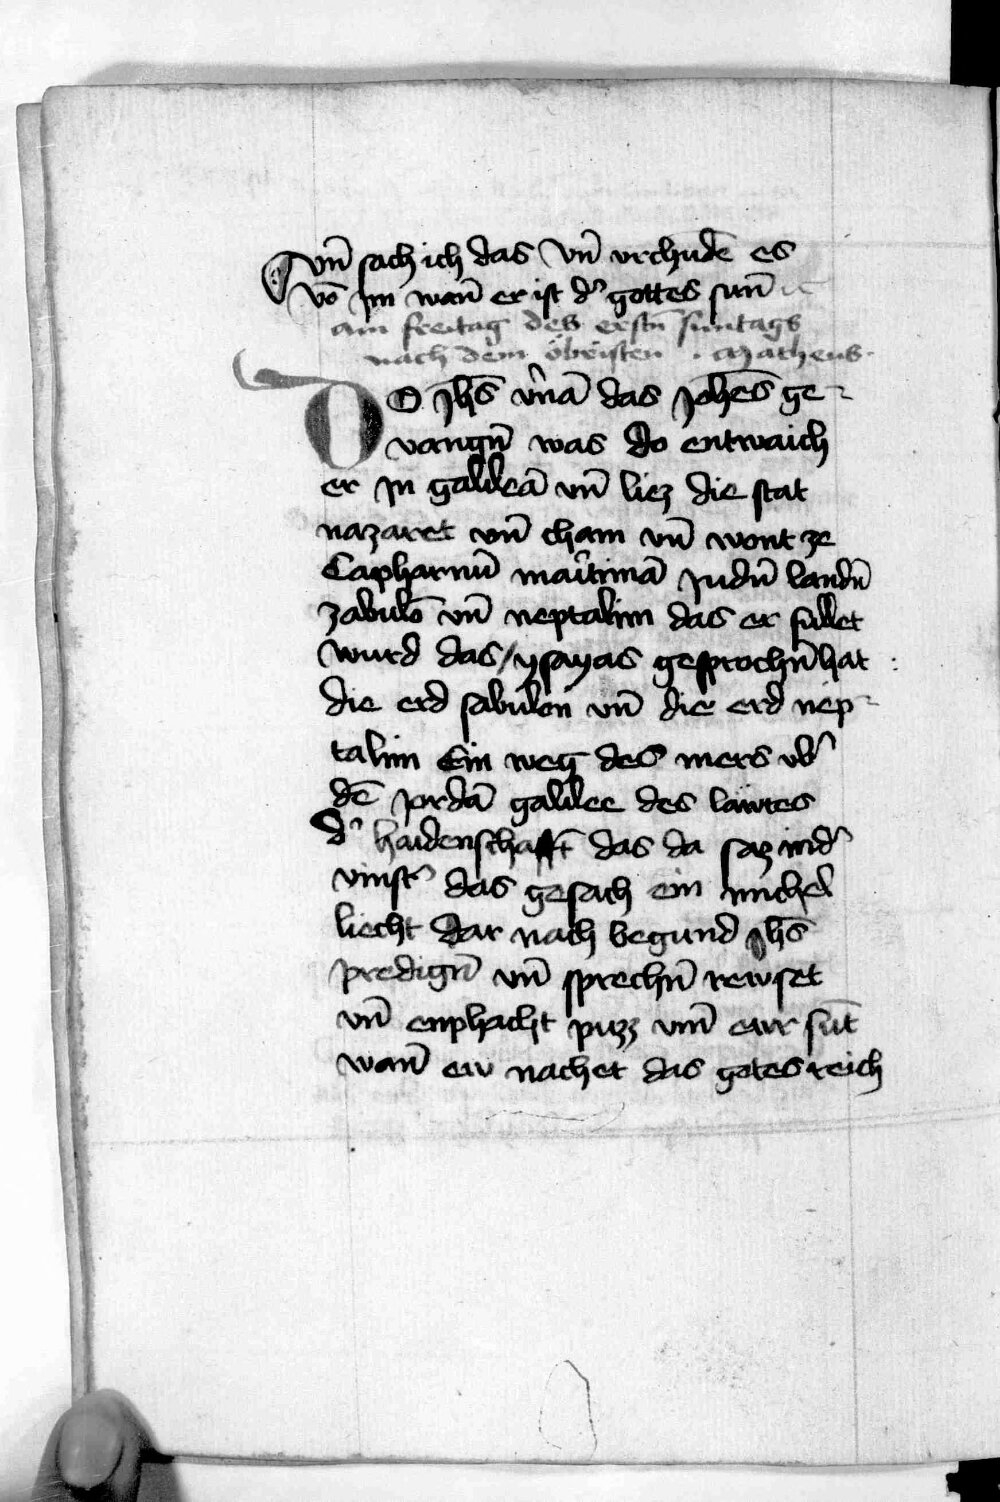 vn̄ sach ich das vn̄ vrchūdē es
vō im wan̄ er ist d' gottes sun̄
am freitag des erstn̄ suntags
nach dem öbristen . Matheus.
DO ihs̄ v'nā das Johēs ge-
vangn̄ was do entwaich
er in galileā vn̄ liez die stat
nazaret vn̄ cham vn̄ wont ze
Capharnū maritimā in dn̄ landn̄
zabulō vn̄ neptalim das er fullet
wurd das / ysayas gesprochn̄ hat :
die erd sabulon vn̄ die erd nep-
talim Ein weg des mers vb'
dē jordā galilee des lawtes
d' haidenschafft das da saz in d'
vinst' das gesach ein michel
liecht Dar nach begund ihs̄
predign̄ vn̄ sprechn̄ rewset
vn̄ enphacht puzz vm̄ ewr sūt
wan̄ ew nachet das gotes reich